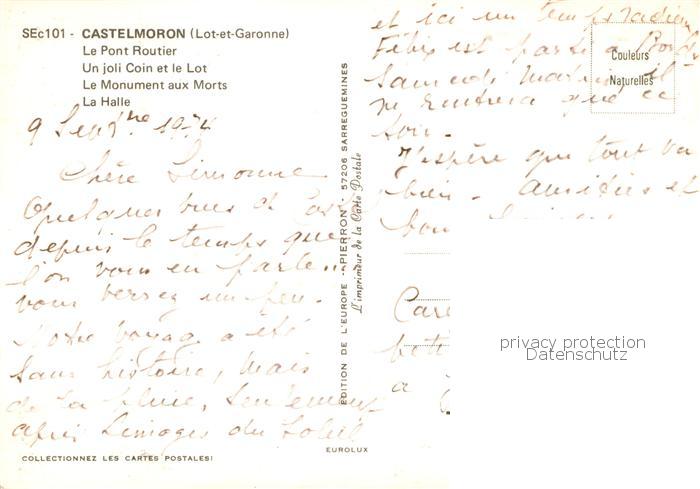 SEc101 - CASTELMORON (Lot-et-Garonne)
Le Pont Routier
Un joli Coin et le Lot
Le Monument aux Morts
La Halle
9 Septbre 1974
Chère Simonne
Quelques vues de Cast
depuis le temps que
l'on vous en parle...
vous verrez un peu.
Notre voyage a été
sans histoire, mais
de la pluie, seulement
après Limoges du Soleil
COLLECTIONNEZ LES CARTES POSTALES!
EDITION DE L'EUROPE - PIERRON - 57206 SARREGUEMINES
L'imprimeur de la Carte Postale
EUROLUX
et ici un temps radieux
Félix est parti à Bord
Samedi matin, il
ne rentrera que ce
soir.
J'espère que tout va
bien. Amitiés et
bon
Couleurs
Naturelles
privacy protection
Datenschutz